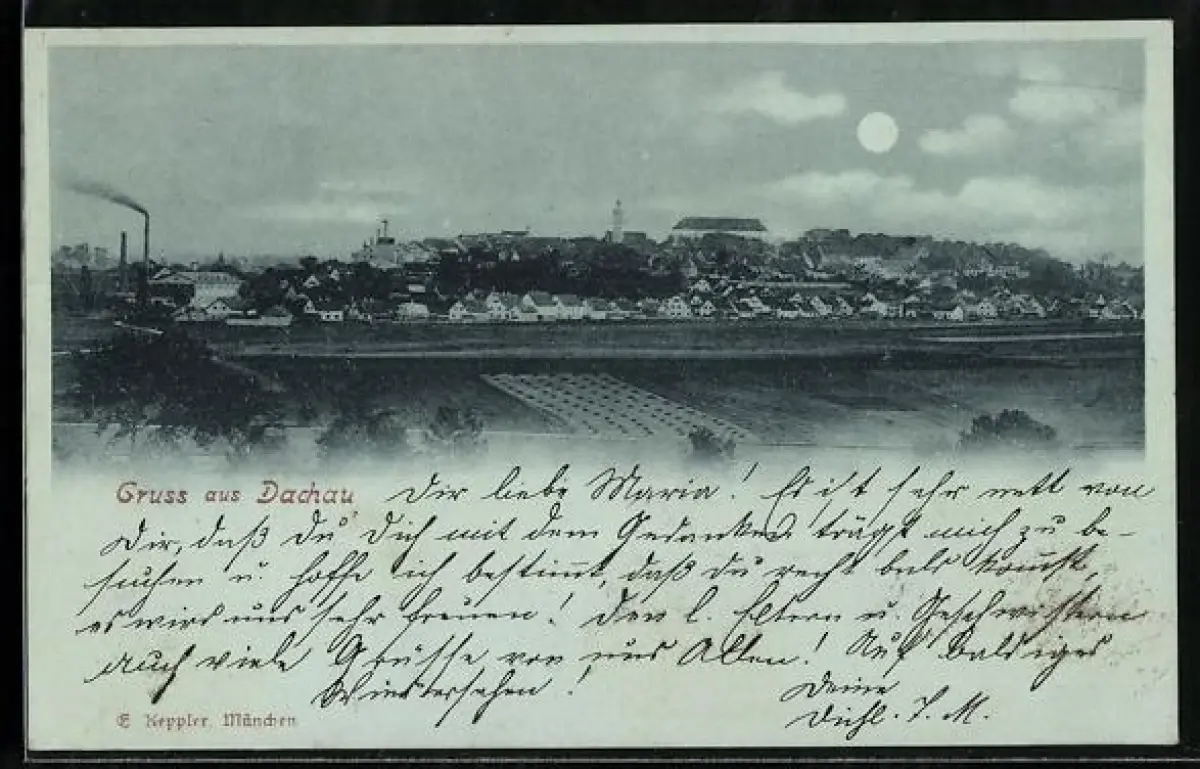 Gruss aus Dachau
Dir liebe Maria! Es ist sehr nett von
Dir, daß Du Dich mit dem Gedanken trägst mich zu be-
suchen u. hoffe ich bestimmt, daß du recht bald kommst,
es wird uns sehr freuen! Den l. Eltern u. Geschwistern
auch viele Grüsse von uns Allen! Auf baldiges
Wiedersehen!
Deine
J. M.
E Keppler, München